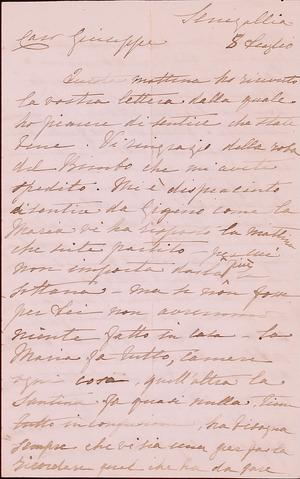 Senigallia
Caro Giuseppe 3 Luglio
Questa mattina ho ricevuto
la vostra lettera dalla quale
ho piacere di sentire che state
bene. Vi ringrazio della roba
del Bimbo che mi avete
spedito. Mi è dispiaciuto
di sentire da come la
Maria vi ha risposto la mattina
che siete partito
non importa più
sottana - ma se non fosse
per Lei non avremmo
niente fatto in casa - la
Maria fa tutto, camere
ogni cosa, quell'altra la
fa quasi nulla, tien
tutto in confusione, ha bisogno
sempre che vi sia una
ricordare quel che ha da fare